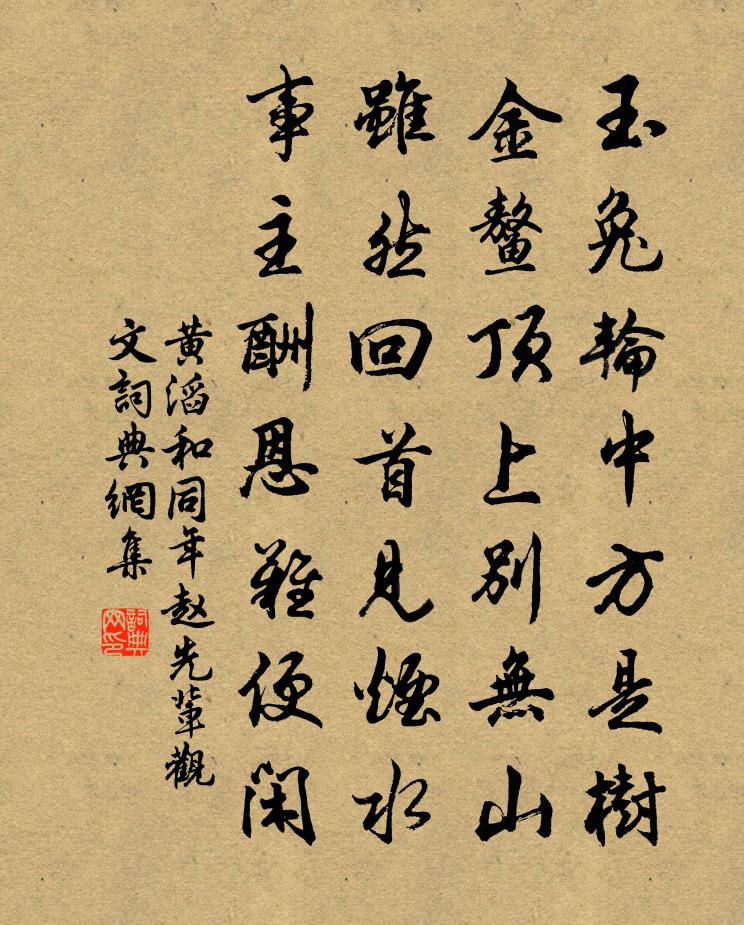 玉兔輪中方是樹
金鰲頂上別無山
雖然回首見煙水
事主酬恩難便閑
黄滔和同年赵先輩觀
文詞典網集
詞典
网印